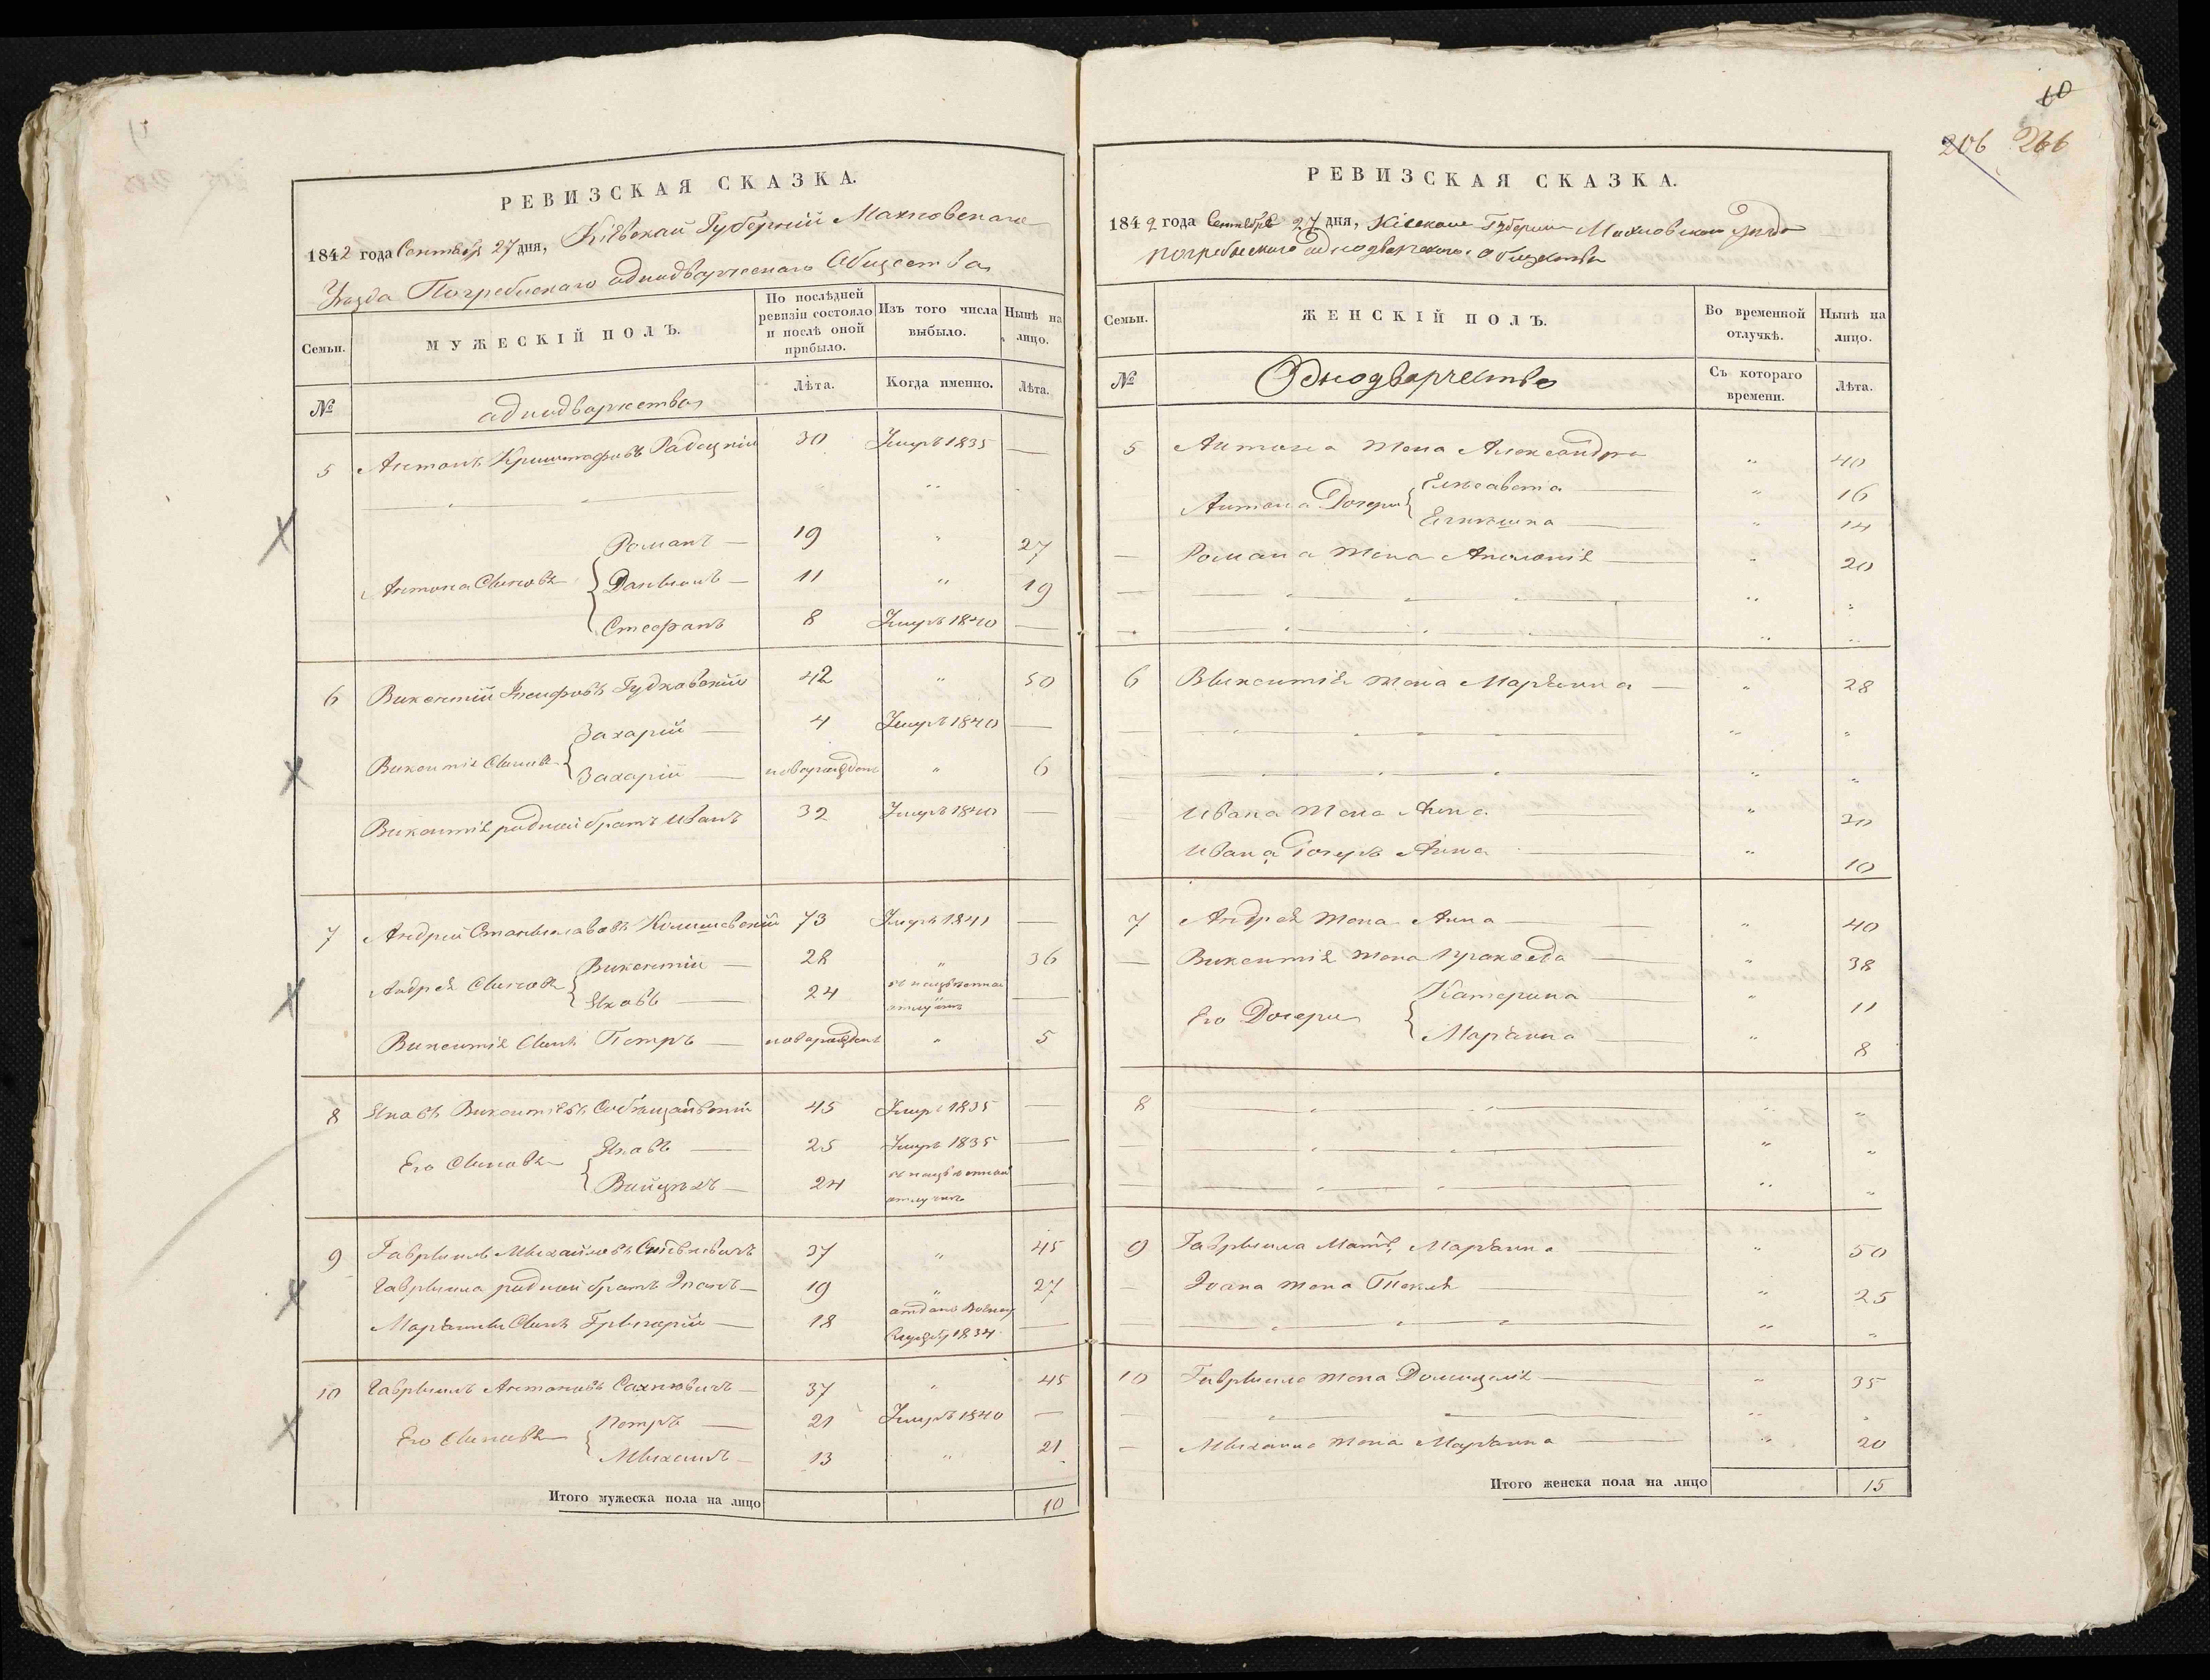 РЕВИЗСКАЯ СКАЗКА.
1842 года Сентября 27 дня, Кіевской Губерніи Махновскаго
Уезда Погребискаго однодворческаго Общества
Семьи. МУЖЕСКІЙ ПОЛЪ. По послѣдней ревизіи состояло и послѣ оной прибыло. Изъ того числа выбыло. Нынѣ на лицо.
№ однодворчества Лѣта. Когда именно. Лѣта.
5 Антонъ Криштофовъ Радецкій 30 Умръ 1835 —
Антона Сыновья { Романъ — 19 " 27
Даныилъ — 11 " 19
Стефанъ 8 Умръ 1840 —
6 Викентий Іосифовъ Гудковскій 42 " 50
Викентия Сыновья { Захарій — 4 Умръ 1840 —
Захарій — новорожденъ " 6
Викентія родной братъ Иванъ 32 Умръ 1840 —
7 Андрей Станыславовъ 73 Умръ 1841 —
Андрея Сыновья { Викентій — 28 " 36
Яковъ — 24 въ неизвѣстной отлучкѣ —
Викентія Сынъ Петръ — новорожденъ " 5
8 Яковъ Викентіевъ 45 Умръ 1835 —
Его Сыновья { Яковъ — 25 Умръ 1835 —
Войцѣхъ — 24 въ неизвѣстной отлучкѣ —
9 Гаврыилъ Михайловъ 37 " 45
Гаврыила родной братъ — 19 " 27
Марѣанны Сынъ Грыгорій — 18 отданъ Военну Службу 1834 —
10 Гаврыилъ Антоновъ Сахновичъ — 37 " 45
Его Сыновья { Петръ — 21 Умръ 1840 —
Мыхаилъ — 13 " 21
Итого мужеска пола на лицо 10
10
206 266
РЕВИЗСКАЯ СКАЗКА.
1842 года Сентября 27 дня, Кіевской Губерніи Махновскаго Уезда
Погребискаго однодворческаго Общества
Семьи. ЖЕНСКІЙ ПОЛЪ. Во временной отлучкѣ. Нынѣ на лицо.
№ Однодворчества Съ котораго времени. Лѣта.
5 Антона Жена Александра " 40
Антона Дочери { Елисавета — " 16
— " 14
— Романа Жена Аполонія — " 20
6 Выкентія жена Марѣанна — " 28
Ивана Жена Анна — "
Ивана Дочерь Анна — " 10
7 Андрея Жена Анна — " 40
— Викентія жена Пракседа — " 38
Его Дочери { Катерина — " 11
Марѣанна — " 8
8
9 Гаврыила Мать Марѣанна — " 50
— жена Текля — " 25
10 Гаврыила жена Домицеля — " 35
— Мыхаила жена Марѣанна — " 20
Итого женска пола на лицо 15